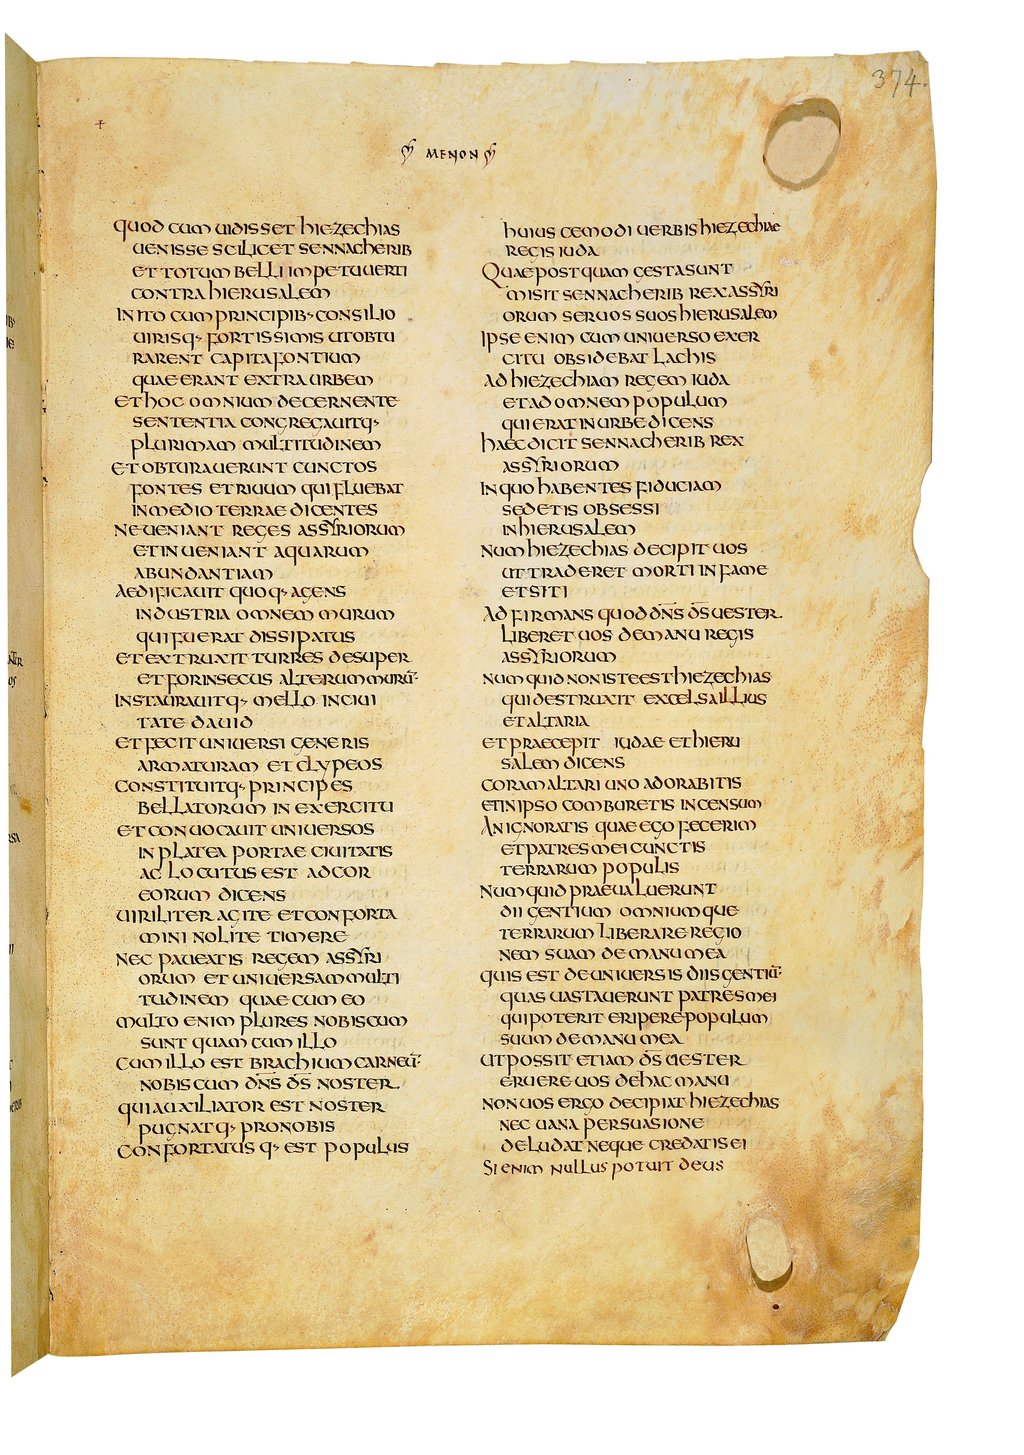 374.
MENON
quod cum uidisset hiezechias
uenisse scilicet sennacherib
et totum belli impetu uerti
contra hierusalem
inito cum principib· consilio
uirisq· fortissimis ut obtu
rarent capita fontium
quae erant extra urbem
et hoc omnium decernente
sententia congregauitq·
plurimam multitudinem
et obturauerunt cunctos
fontes et riuum qui fluebat
in medio terrae dicentes
ne ueniant reges assyriorum
et inueniant aquarum
abundantiam
aedificauit quoq· agens
industria omnem murum
qui fuerat dissipatus
et extruxit turres desuper
et forinsecus alterum murū·
instaurauitq· mello in ciui
tate dauid
et fecit uniuersi generis
armaturam et clypeos
constituitq· principes
bellatorum in exercitu
et conuocauit uniuersos
in platea portae ciuitatis
ac locutus est ad cor
eorum dicens
uiriliter agite et conforta
mini nolite timere
nec paueatis regem assyri
orum et uniuersam multi
tudinem quae cum eo
multo enim plures nobiscum
sunt quam cum illo
cum illo est brachium carneū·
nobiscum dn̄s d̄s noster
qui auxiliator est noster
pugnatq· pro nobis
confortatus q· est populus
huiuscemodi uerbis hiezechiae
regis iuda
Quae postquam gesta sunt
misit sennacherib rex assyri
orum seruos suos hierusalem
ipse enim cum uniuerso exer
citu obsidebat lachis
ad hiezechiam regem iuda
et ad omnem populum
qui erat in urbe dicens
haec dicit sennacherib rex
assyriorum
in quo habentes fiduciam
sedetis obsessi
in hierusalem
num hiezechias decipit uos
ut traderet morti in fame
et siti
adfirmans quod dn̄s d̄s uester
liberet uos de manu regis
assyriorum
numquid non iste est hiezechias
qui destruxit excelsa illius
et altaria
et praecepit iudae et hieru
salem dicens
coram altari uno adorabitis
et in ipso comburetis incensum
an ignoratis quae ego fecerim
et patres mei cunctis
terrarum populis
numquid praeualuerunt
dii gentium omniumque
terrarum liberare regio
nem suam de manu mea
quis est de uniuersis diis gentiū·
quas uastauerunt patres mei
qui poterit eripere populum
suum de manu mea
ut possit etiam d̄s uester
eruere uos de hac manu
non uos ergo decipiat hiezechias
nec uana persuasione
deludat neque credatis ei
si enim nullus potuit deus